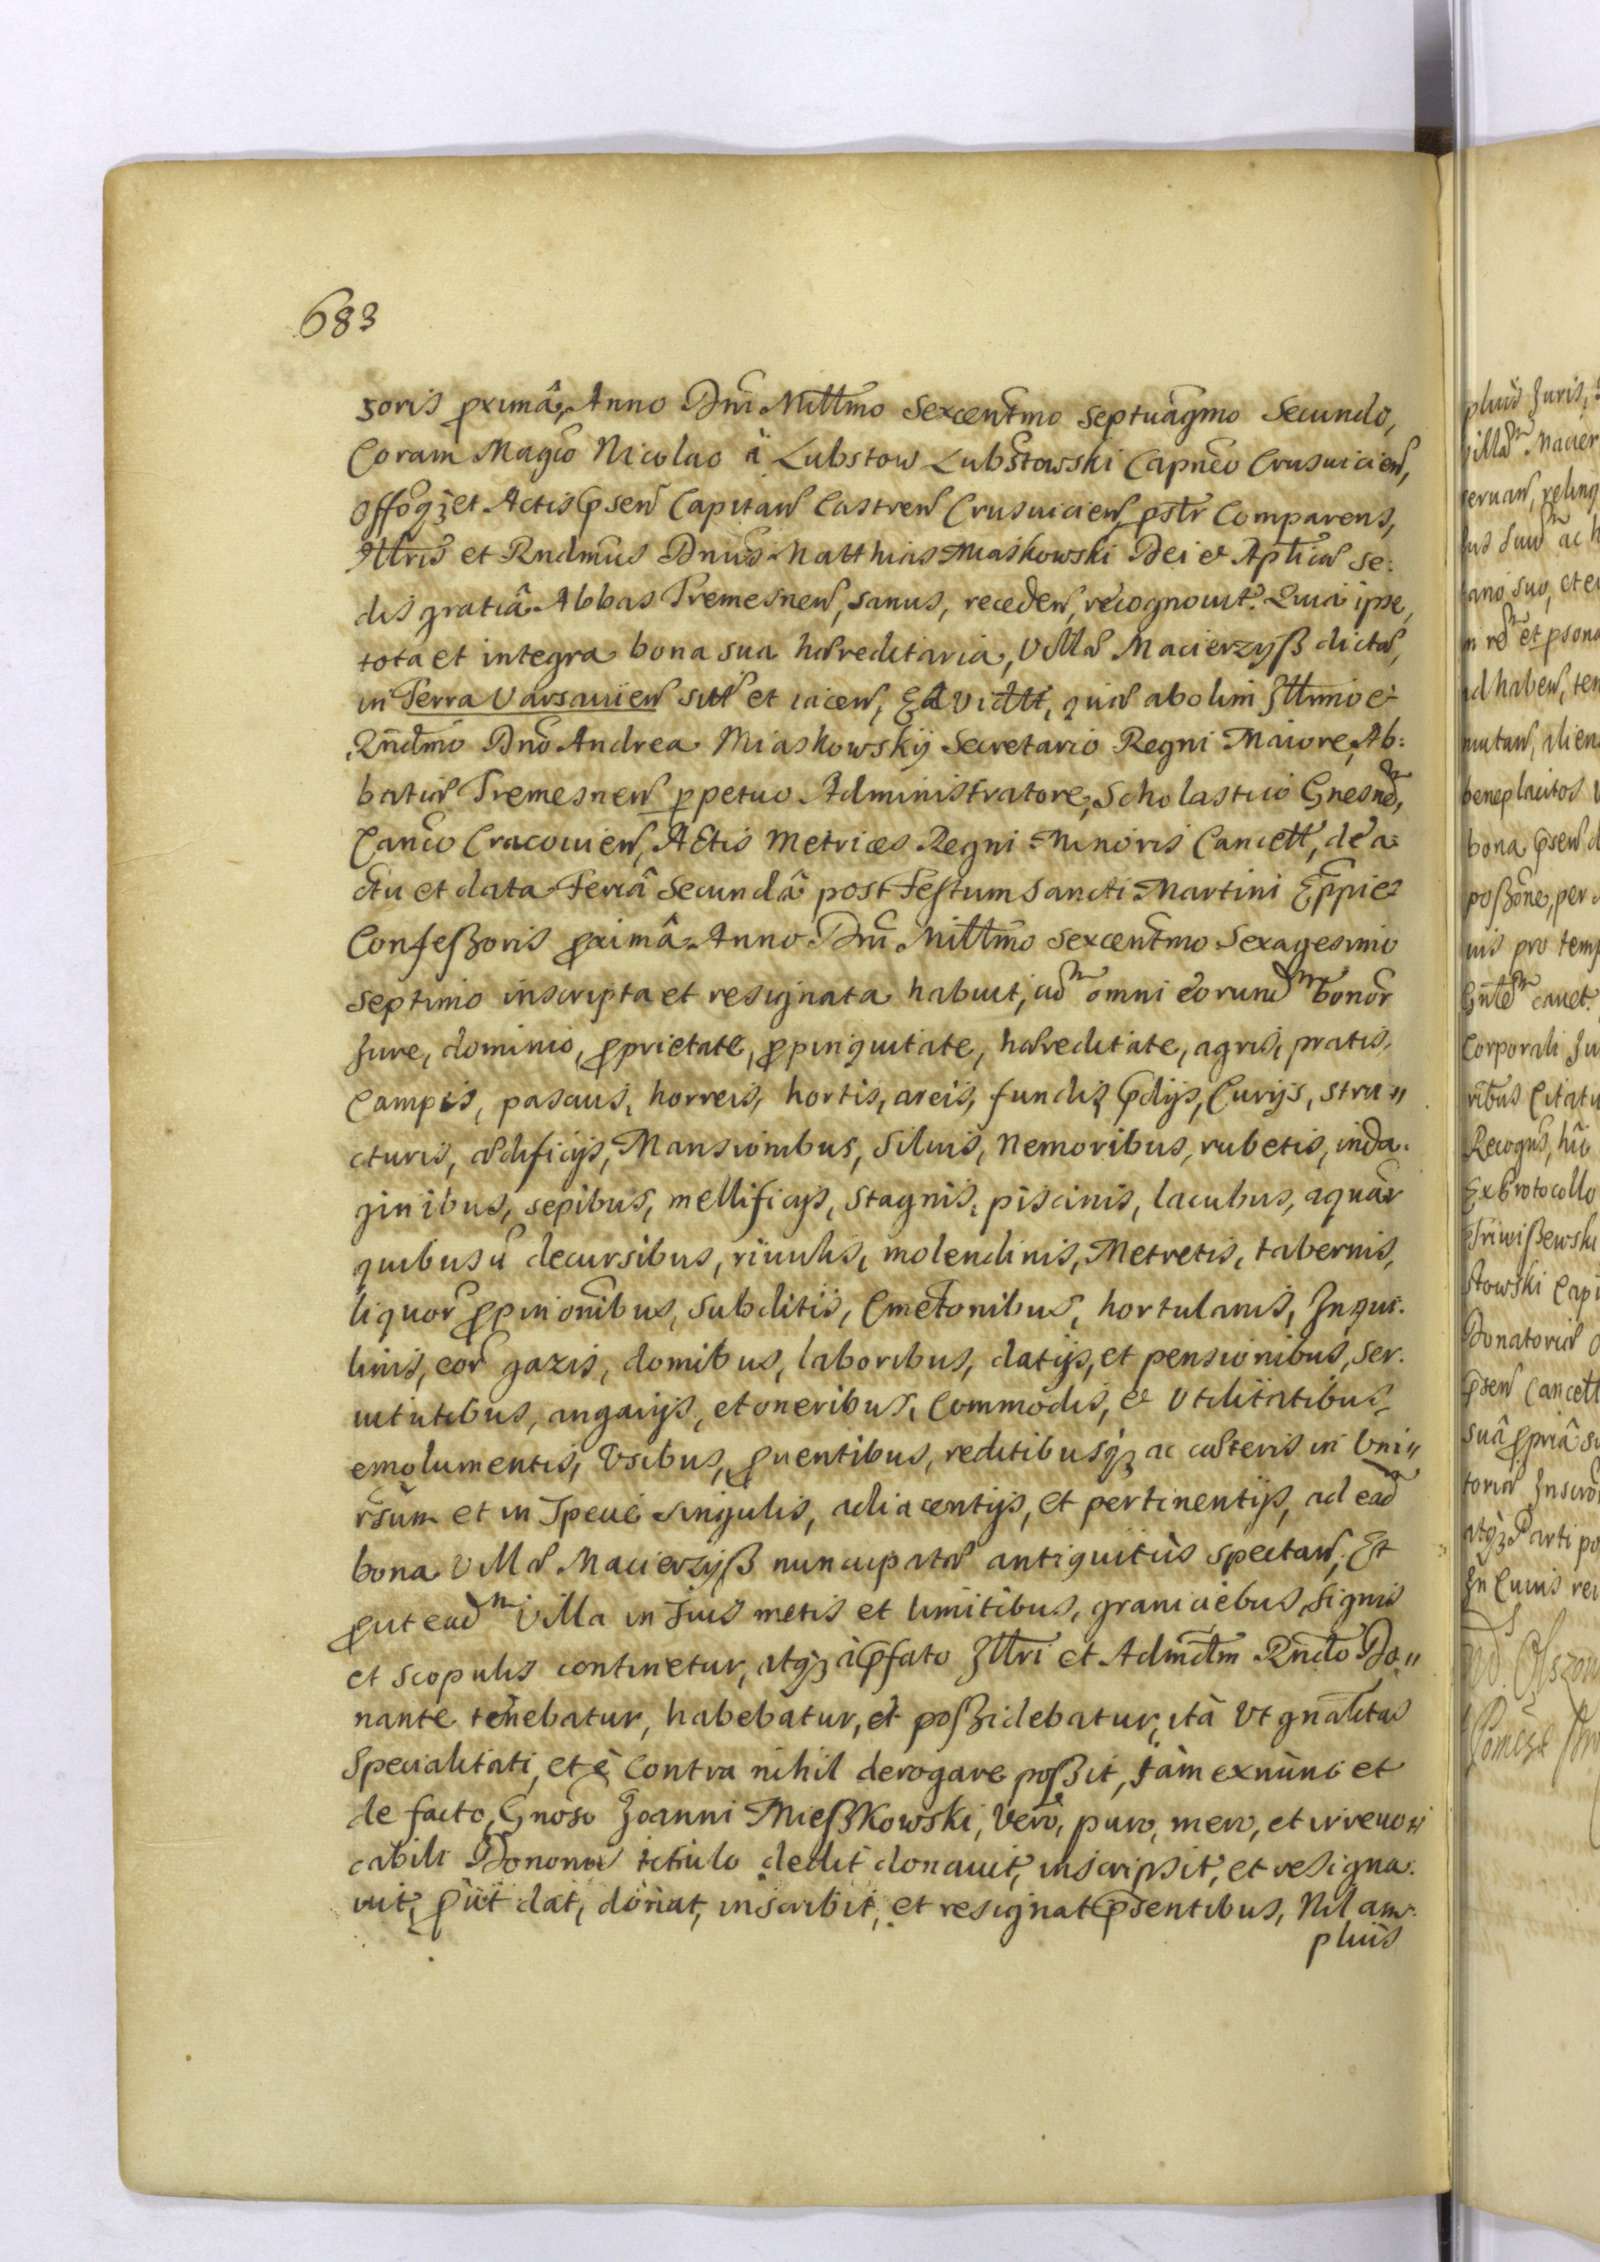 683
soris pximâ, Anno Dni Millmo Sexcentmo Septuagmo Secundo,
Coram Magco Nicolao à Lubstow Lubstowski Capneo Crusuicien,
Offoq3 et Actis psen Capitan Castren Crusuicien pstr Comparens,
Illris et Rndmus Dnus Matthias Miaskowski Dei et Aplicæ Se:
dis gratiâ Abbas Tremesnen, sanus, receden, recognouit: Quia ipse,
tota et integra bona sua hæreditaria, Villæ Macierzyß dictæ,
in Terra Varsauien sitt et iacen, Ea Vidtt, quæ ab olim Illrmo et
Rndmo Dno Andrea Miaskowskÿ Secretario Regni Maiore, Ab:
batiæ Tremesnen ppetuo Administratore, Scholastico Gnesnen,
Canco Cracouien, Actis Metrices Regni Minoris Cancell, de a:
ctu et data Feriâ Secundâ post Festum Sancti Martini Eppi et
Confeßoris pximâ Anno Dni Millmo Sexcentmo Sexagesimo
septimo inscripta et resignata habuit, cum omni eorund bonor
Jure, dominio, pprietate, ppinquitate, hæreditate, agris, pratis,
Campis, pascuis, horreis, hortis, areis, fundis, pdijs, Curijs, stru"
cturis, ædificijs, Mansionibus, Siluis, Nemoribus, rubetis, inda:
ginibus, sepibus, mellificijs, Stagnis, piscinis, lacubus, aquar
quibusu decursibus, riuulis, molendinis, Metretis, tabernis,
liquor ppinonibus, Subditis, Cmetonibus, hortulanis, Inqui:
linis, eor gazis, domibus, laboribus, datijs, et pensionibus, ser:
uitutibus, angarijs, et oneribus, Commodis, et Utilitatibus,
emolumentis, Vsibus, puentibus, reditibusq3 ac cæteris in Vni"
rsum et in Specie singulis, adiacentijs, et pertinentijs, ad ead
bona Villæ Macierzyß nuncupatæ antiquitùs spectan, Et
put ead Villa in Suis metis et limitibus, graniciebus, signis
et scopulis continetur, atq3 à pfato Illri et Admdm Rndo Do"
nante tenebatur, habebatur, et poßidebatur, ità Vt gnalitas
Specialitati, et è Contra nihil derogare poßit, Iàm ex nùnc et
de facto, Gnoso Joanni Mießkowski, Vero, puro, mero, et irreuo"
cabili Dononis titulo dedit donauit, inscripsit, et resigna:
uit, put dat, donat, inscribit, et resignat psentibus, Nil am:
pliùs